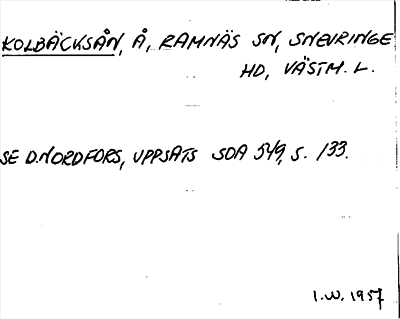 KOLBÄCKSÅN, Å, RAMNÄS SN, SNEVRINGE
HD, VÄSTM. L.
SE D. NORDFORS, UPPSATS SOA 549, S. 133.
I.W. 1957